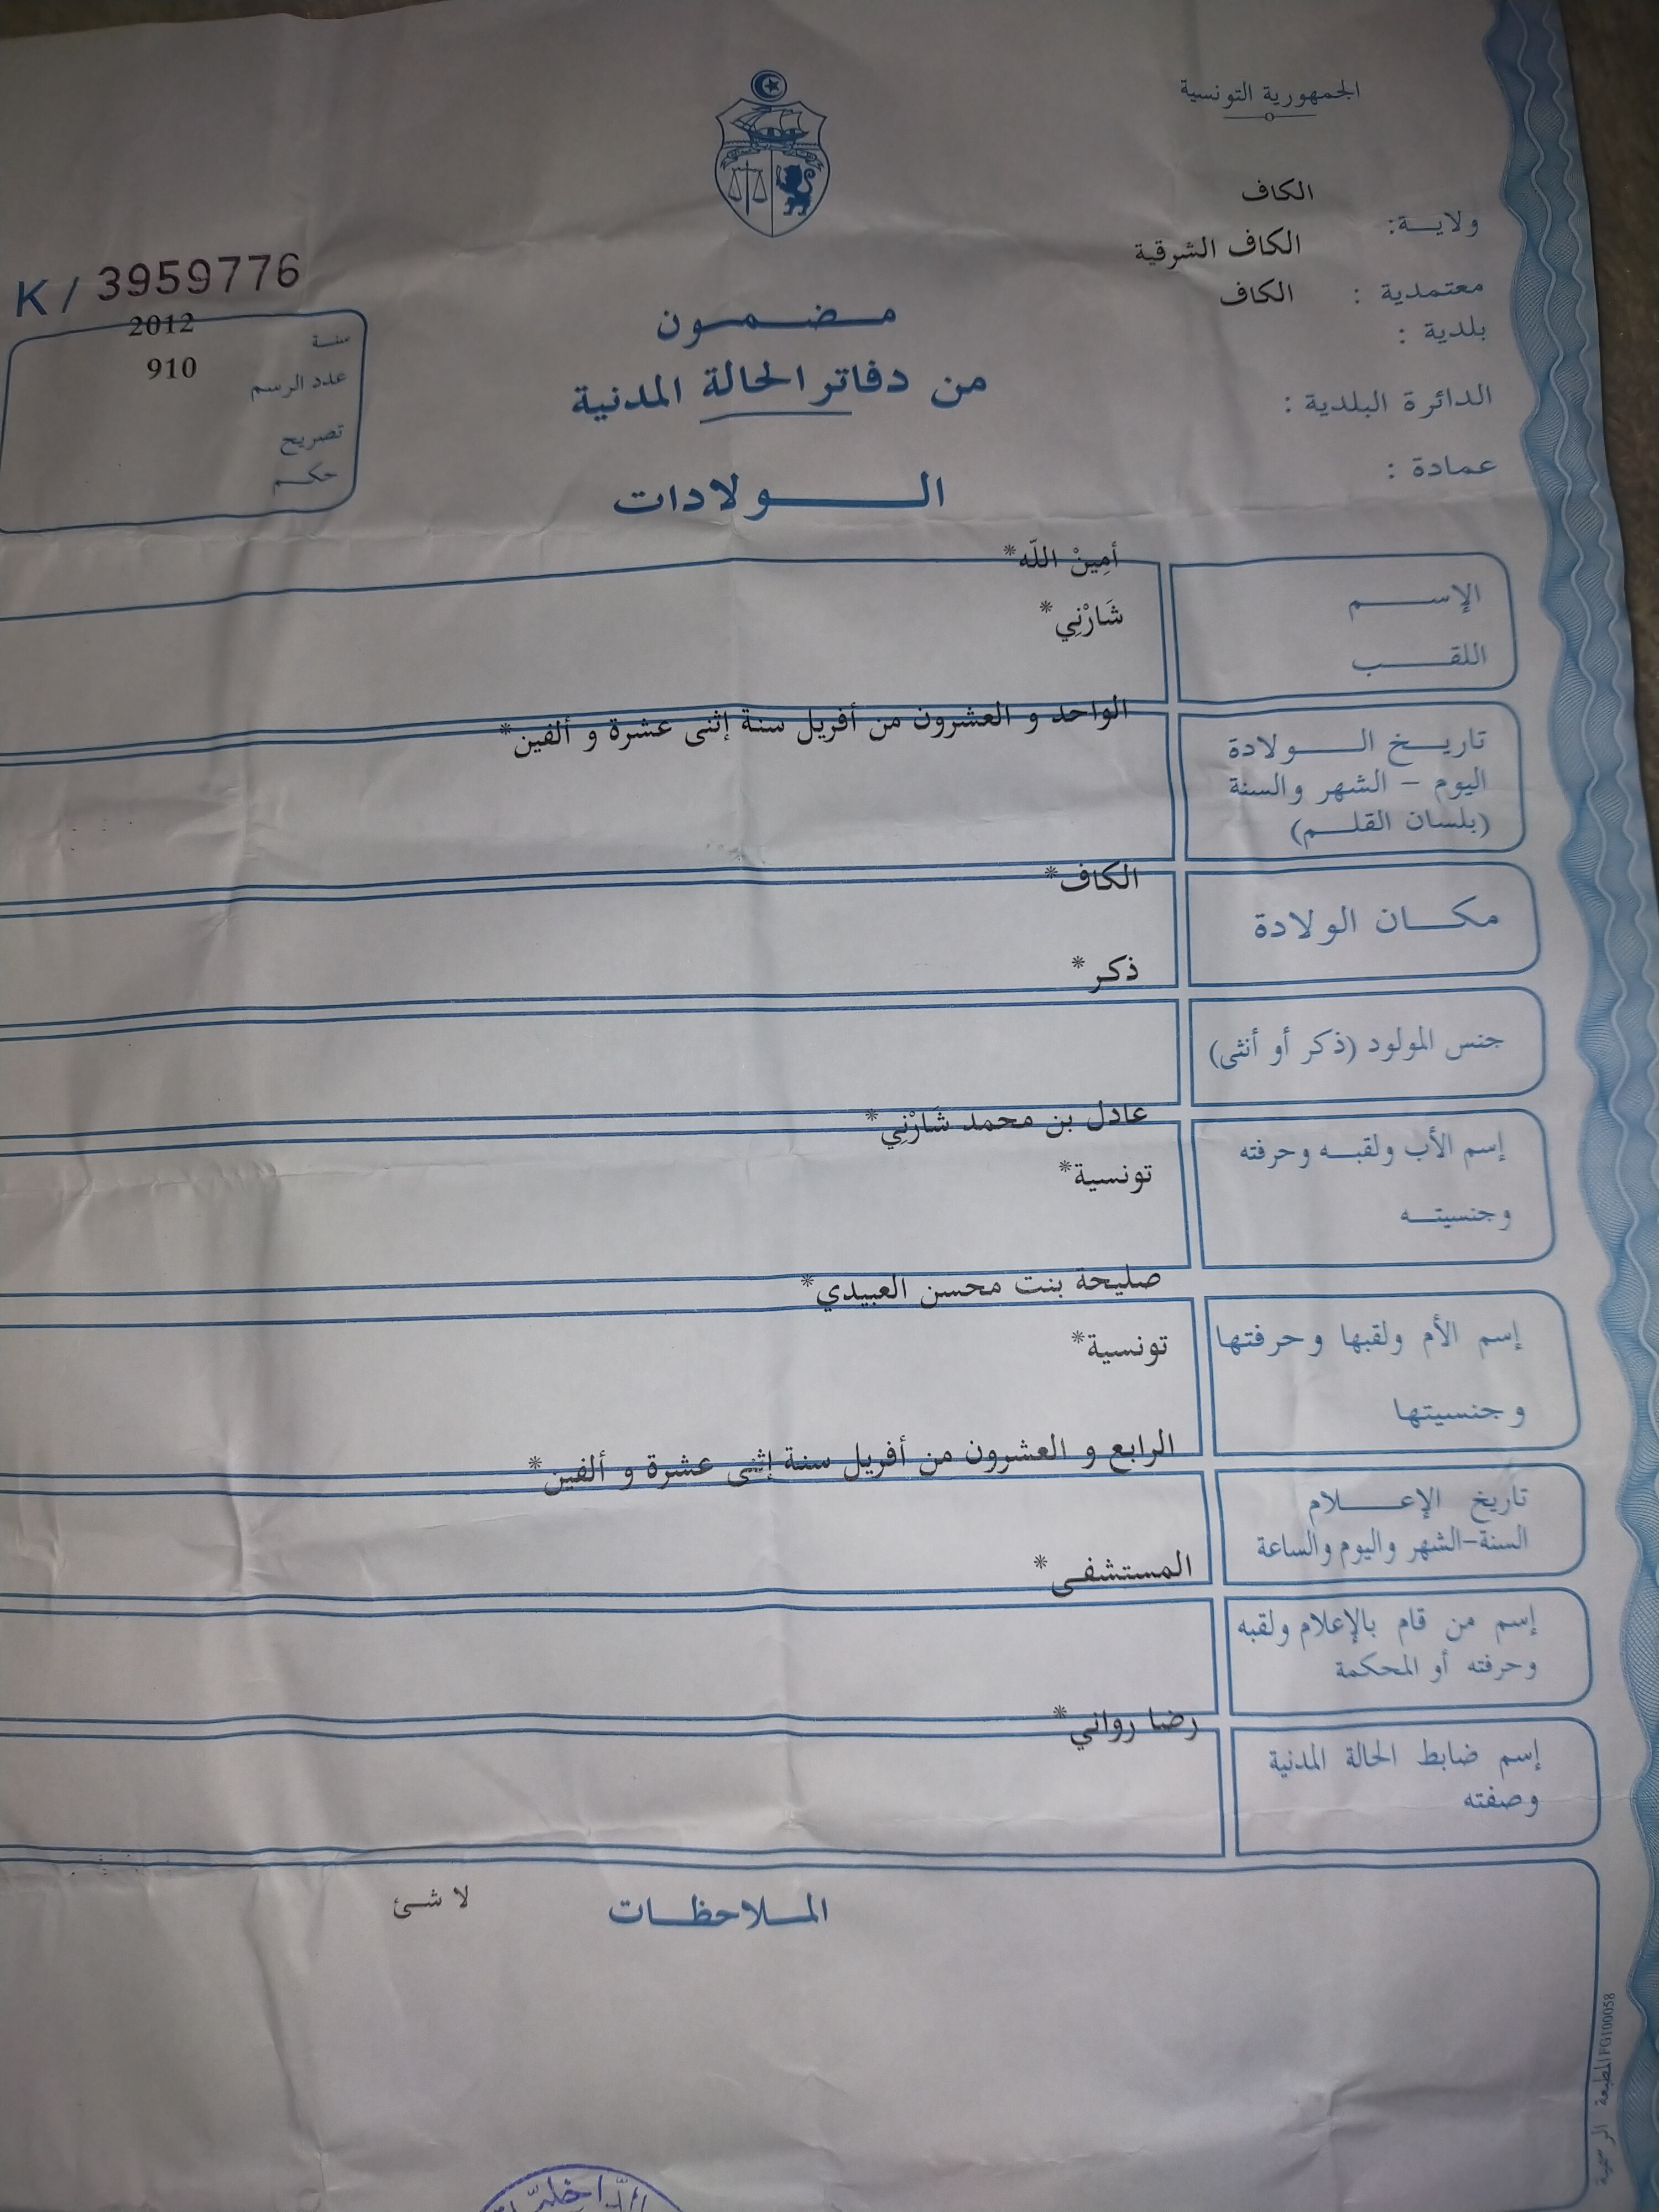 الجمهورية التونسية
ولاية: الكاف
معتمدية : الكاف الشرقية
بلدية : الكاف
الدائرة البلدية :
عمادة :
K / 3959776
سنة 2012
عدد الرسم 910
تصريح
حكم
مضمون
من دفاتر الحالة المدنية
الولادات
الإسم أمِينْ اللّه*
اللقب شَارْنِي*
تاريخ الولادة الواحد و العشرون من أفريل سنة إثنى عشرة و ألفين*
اليوم – الشهر والسنة
(بلسان القلم)
مكان الولادة الكاف*
جنس المولود (ذكر أو أنثى) ذكر*
إسم الأب ولقبه وحرفته عادل بن محمد شَارْنِي*
وجنسيته تونسية*
إسم الأم ولقبها وحرفتها صليحة بنت محسن العبيدي*
وجنسيتها تونسية*
تاريخ الإعلام الرابع و العشرون من أفريل سنة إثنى عشرة و ألفين*
السنة-الشهر واليوم والساعة
إسم من قام بالإعلام ولقبه المستشفى*
وحرفته أو المحكمة
إسم ضابط الحالة المدنية رضا رواني*
وصفته
الملاحظات لا شئ
المطبعة الرسمية FG100058